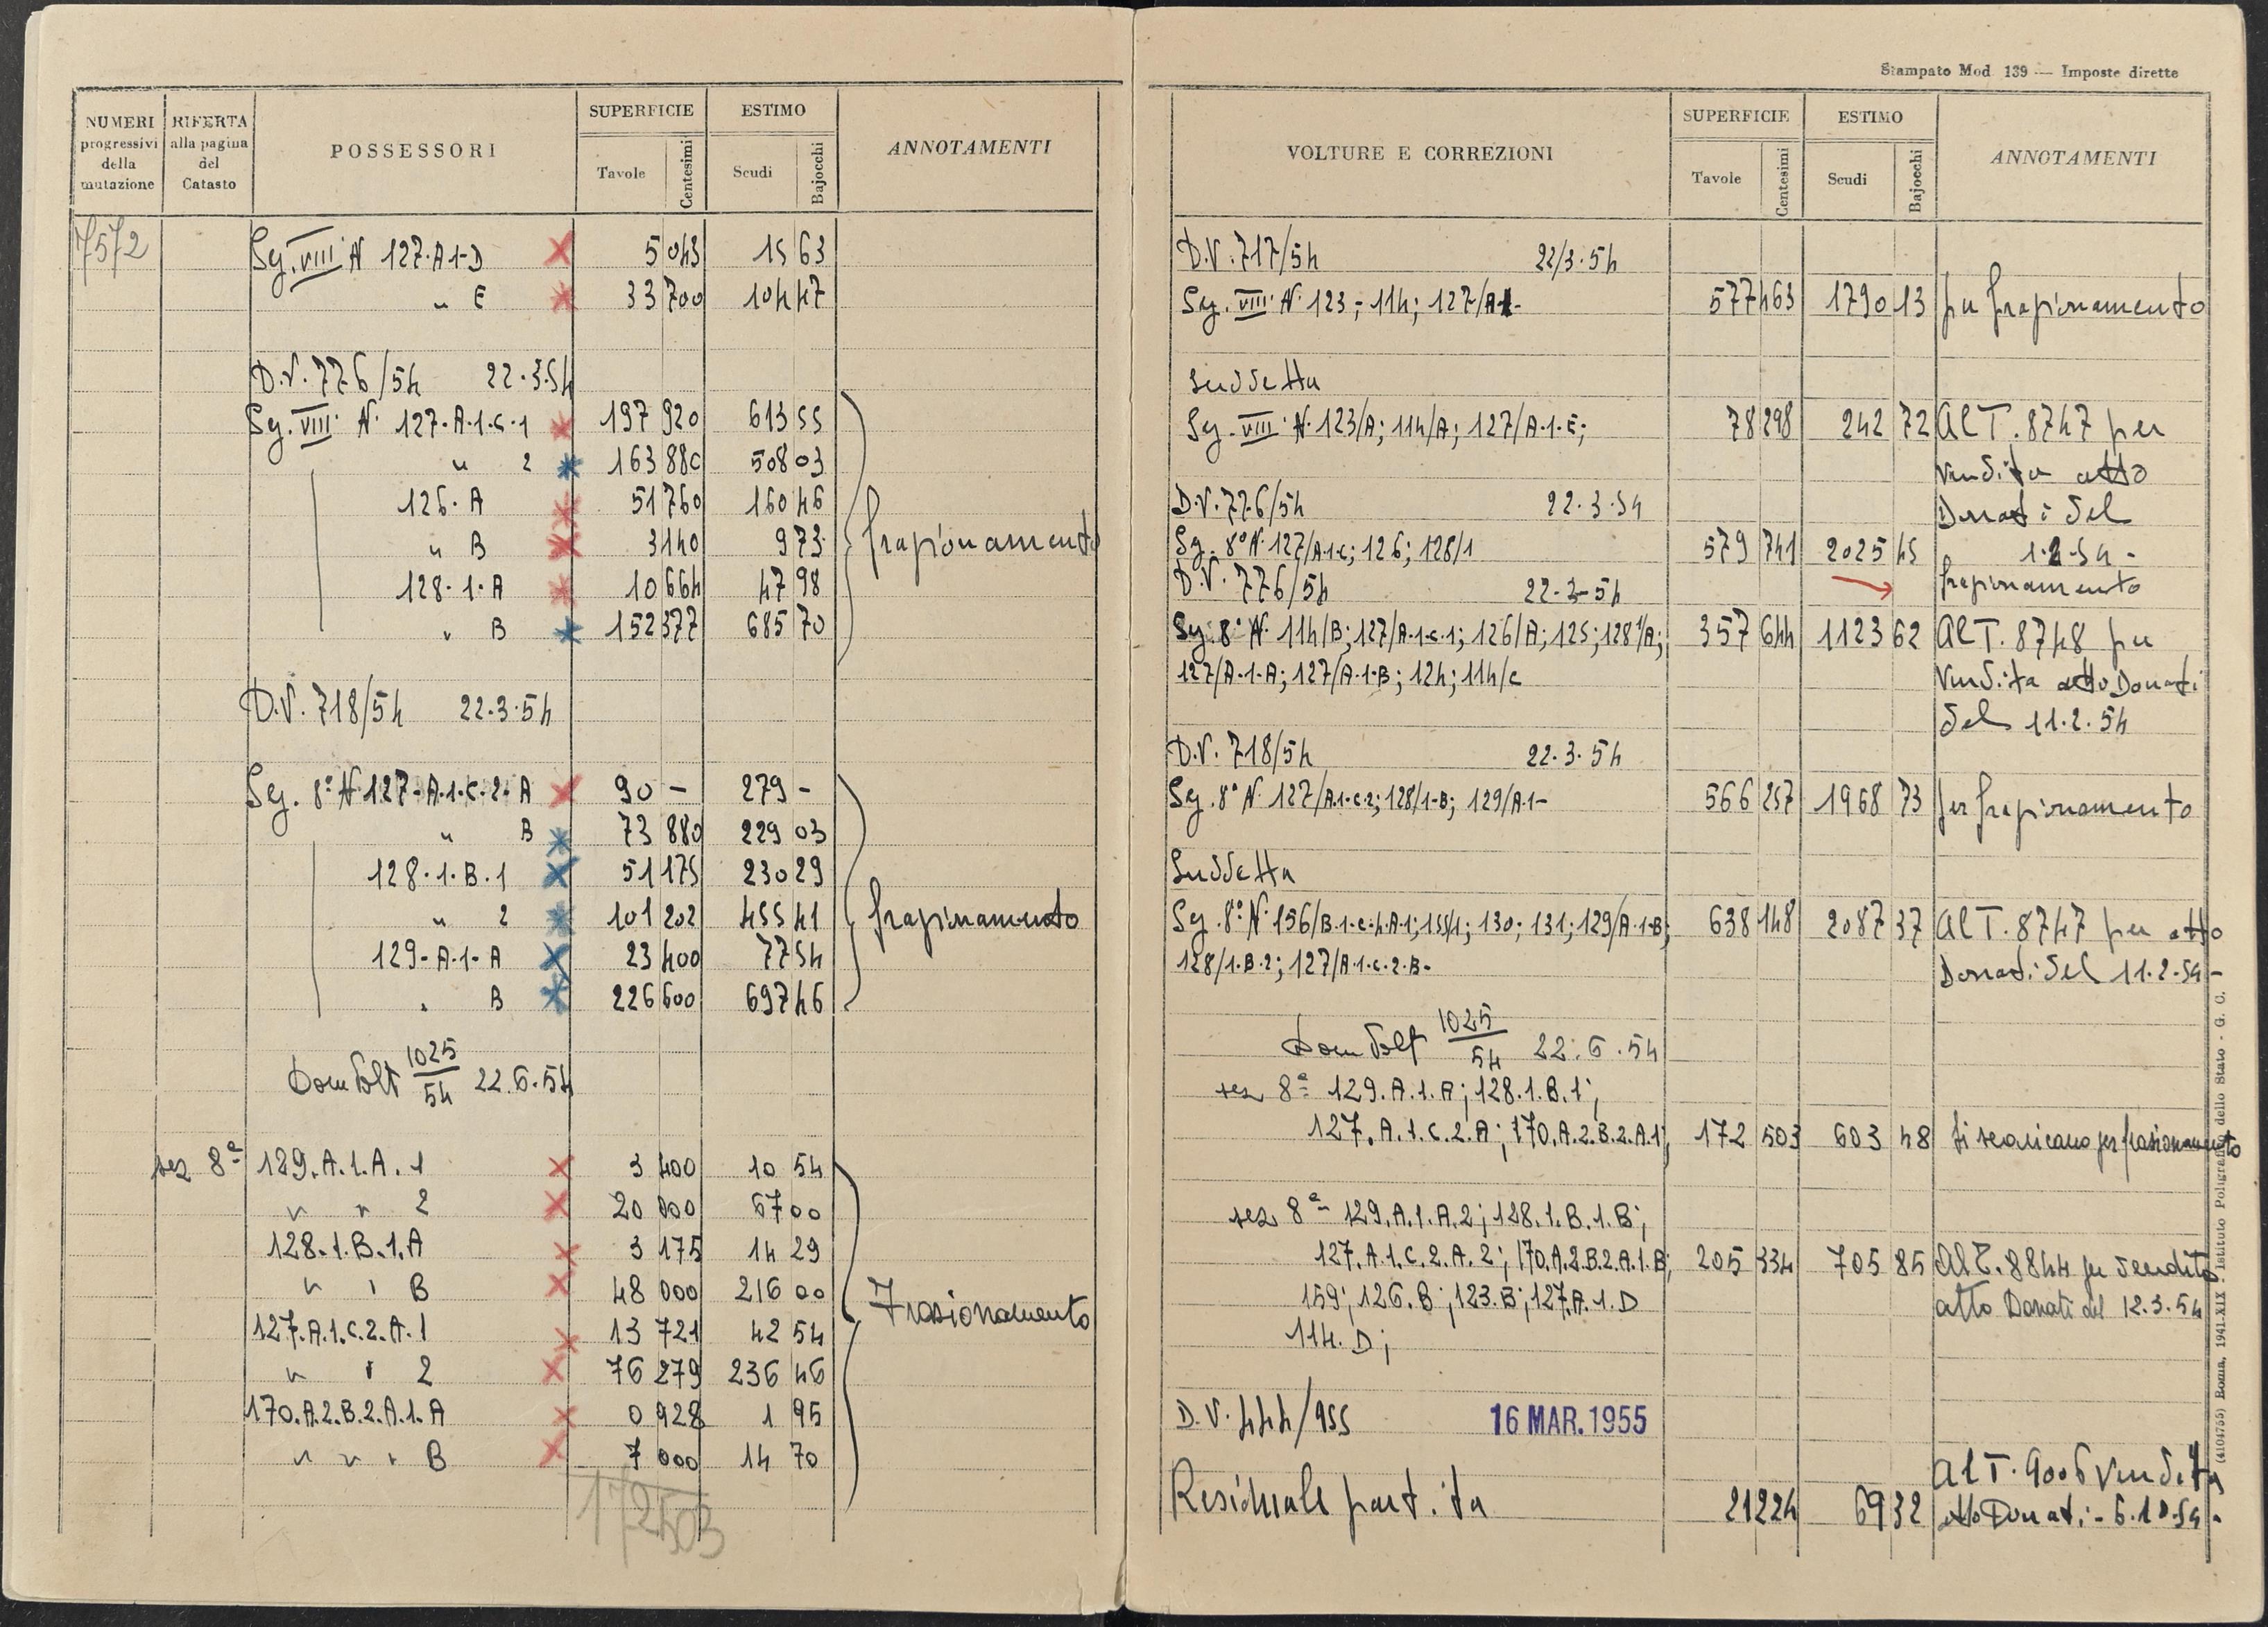 NUMERI progressivi della mutazione
RIFERTA alla pagina del Catasto
POSSESSORI
SUPERFICIE
Tavole
Centesimi
ESTIMO
Scudi
Bajocchi
ANNOTAMENTI
7572
Sez. VIII N 127-A1-D 5 043 15 63
" E 33 700 104 47
D.V. 776/54 22.3.54
Sez. VIII N. 127-A.1.C.1 197 920 613 55
" 2 163 880 508 03
126. A 51 760 160 46
" B 3 140 9 73
frazionamento
128.1.A 10 664 47 98
" B 152 377 685 70
D.V. 718/54 22.3.54
Sez. 8° N 127-A.1.C.2-A 90 - 279 -
" B 73 880 229 03
128.1.B.1 51 175 230 29
" 2 101 202 455 41
frazionamento
129-A.1-A 23 400 77 54
" B 226 600 697 46
Dom Volt 1025/54 22.6.54
sez 8ª 129.A.1.A.1 3 400 10 54
" " 2 20 000 67 00
128.1.B.1.A 3 175 14 29
" " B 48 000 216 00
Frazionamento
127.A.1.C.2.A.1 13 721 42 54
" " 2 76 279 236 46
170.A.2.B.2.A.1.A 0 928 1 95
" " " B 7 000 14 70
172503
Stampato Mod. 139 — Imposte dirette
VOLTURE E CORREZIONI
SUPERFICIE
Tavole
Centesimi
ESTIMO
Scudi
Bajocchi
ANNOTAMENTI
D.V. 717/54 22/3.54
Sez. VIII N. 123; 114; 127/A1- 577 463 1790 13 per frazionamento
suddetta
Sez. VIII N. 123/A; 114/A; 127/A.1.E; 78 298 242 72 Al T. 8747 per
vendita atto
D.V. 776/54 22.3.54 Donati del
Sez. 8° N. 127/A.1.C; 126; 128/1 579 741 2025 45 1.2.54 -
D.V. 776/54 22-3-54 frazionamento
Sez. 8° N. 114/B; 127/A.1.C.1; 126/A; 125; 128/1/A; 357 644 1123 62 Al T. 8748 per
127/A.1.A; 127/A.1.B; 124; 114/C vendita atto Donati
del 11.2.54
D.V. 718/54 22.3.54
Sez. 8° N. 127/A.1.C.2; 128/1-B; 129/A.1- 566 257 1968 73 per frazionamento
Suddetta
Sez. 8° N. 156/B.1.C.4.A.1; 155/1; 130; 131; 129/A.1-B; 638 148 2087 37 Al T. 8747 per atto
128/1.B.2; 127/A.1.C.2.B- Donati del 11.2.54-
Dom Volt 1025/54 22.6.54
sez 8ª 129.A.1.A; 128.1.B.1;
127.A.1.C.2.A; 170.A.2.B.2.A.1; 172 503 603 48 si scaricano per frazionamento
sez 8ª 129.A.1.A.2; 128.1.B.1.B;
127.A.1.C.2.A.2; 170.A.2.B.2.A.1.B; 205 334 705 85 Al T. 8844 per vendita
159; 126.B; 123.B; 127.A.1.D atto Donati del 12.3.54
114.D;
D.V. 444/955 16 MAR. 1955
Al T. 9006 vendita
Residuale partita 21 224 69 32 atto Donati - 6.10.54.
(4104755) Roma, 1941-XIX - Istituto Poligrafico dello Stato - G. C.